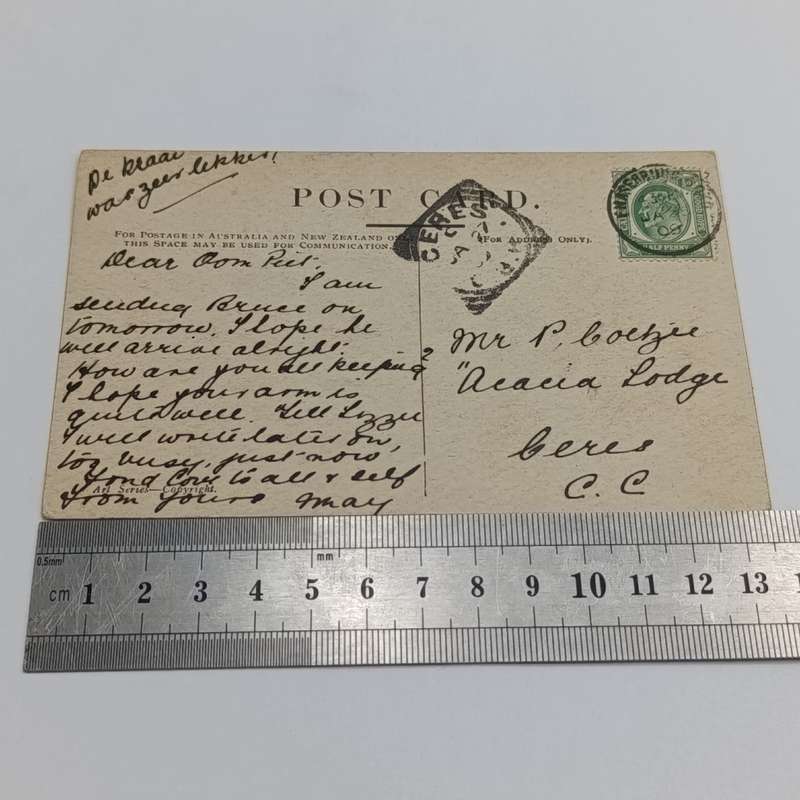 De kraai
was zeer lekker!
POST CARD.
FOR POSTAGE IN AUSTRALIA AND NEW ZEALAND ONLY
THIS SPACE MAY BE USED FOR COMMUNICATION.
(FOR ADDRESS ONLY).
CERES
HALF PENNY
Dear Oom Piet,
I am
sending Bruce on
tomorrow. I hope he
will arrive alright.
How are you all keeping?
I hope your arm is
quite well. Tell Lizzie
I will write later on,
too busy, just now,
Fond Love to all & self
From yours May
Art Series—Copyright.
Mr P. Coetzee
"Acacia Lodge
Ceres
C. C
0.5mm
mm
cm 1 2 3 4 5 6 7 8 9 10 11 12 13